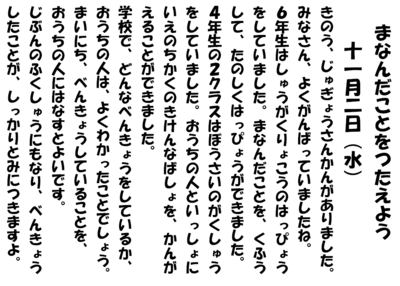 まなんだことをつたえよう
十一月二日（水）
きのう、じゅぎょうさんかんがありました。
みなさん、よくがんばっていましたね。
６年生はしゅうがくりょこうのはっぴょう
をしていました。まなんだことを、くふう
して、たのしくはっぴょうができました。
４年生の２クラスはぼうさいのがくしゅう
をしていました。おうちの人といっしょに
いえのちかくのきけんなばしょを、かんが
えることができました。
学校で、どんなべんきょうをしているか、
おうちの人は、よくわかったことでしょう。
まいにち、べんきょうしていることを、
おうちの人にはなすとよいです。
じぶんのふくしゅうにもなり、べんきょう
したことが、しっかりとみにつきますよ。